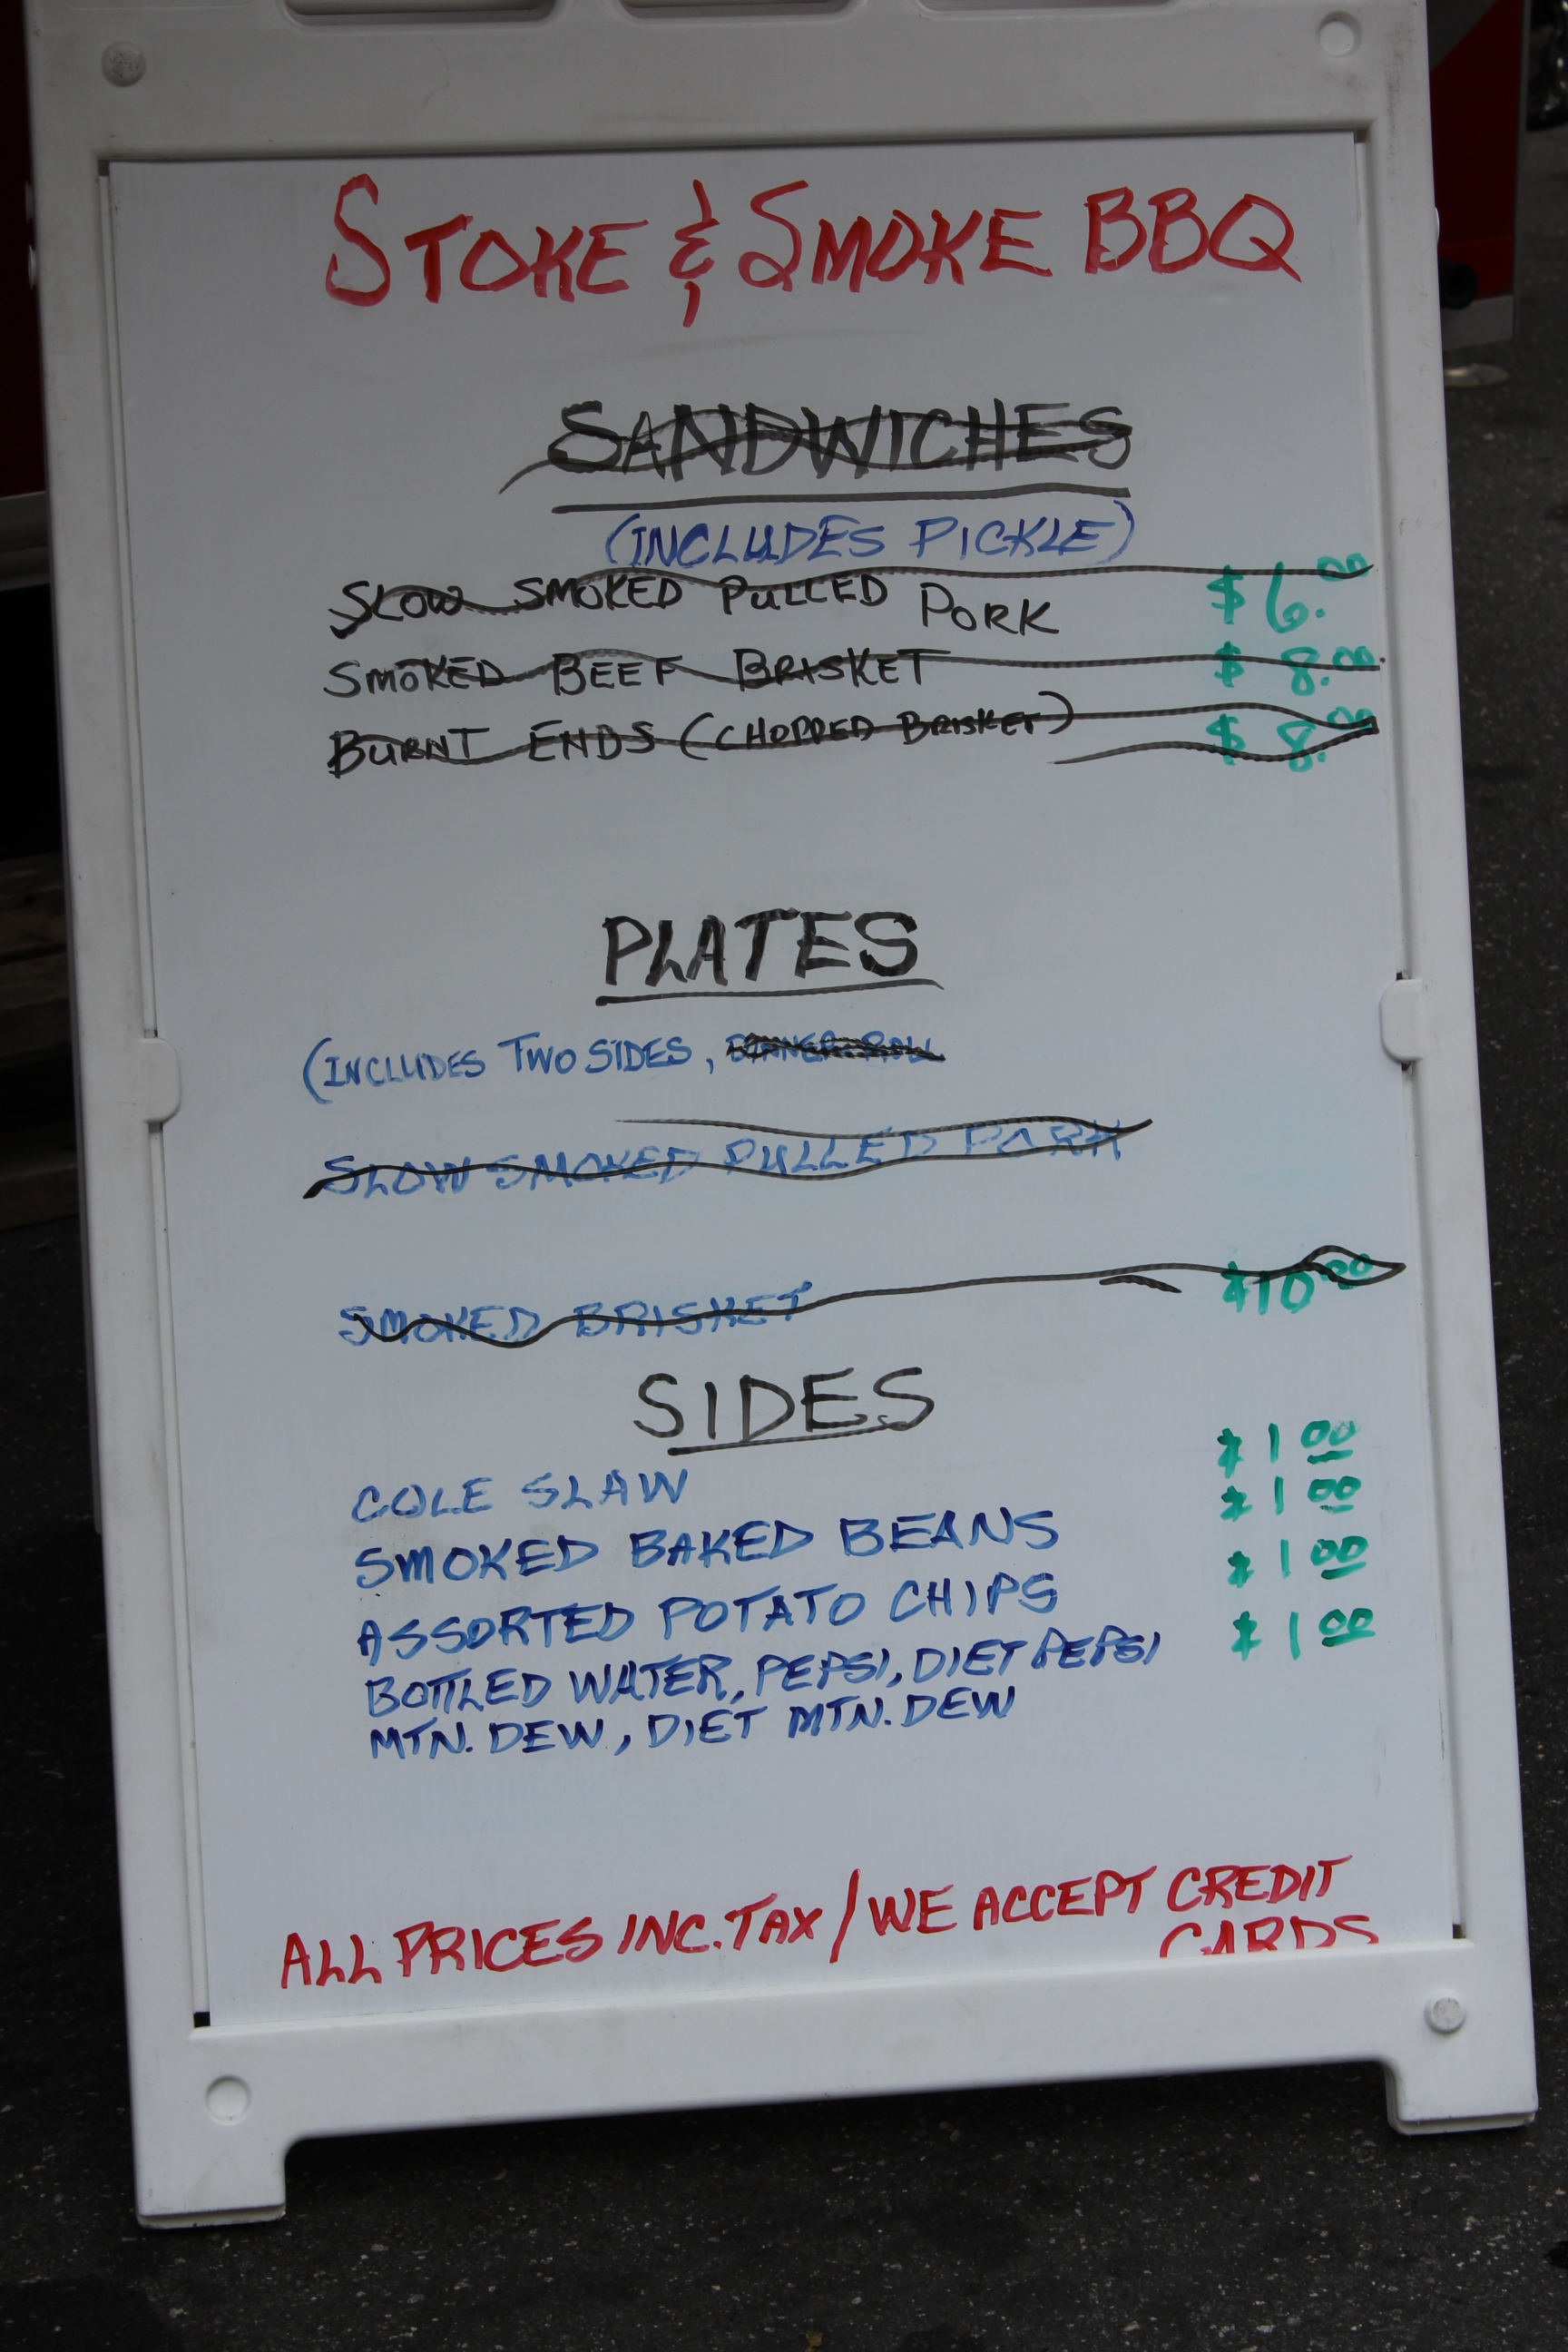 STOKE & SMOKE BBQ
SANDWICHES
(INCLUDES PICKLE)
SLOW SMOKED PULLED PORK $6.00
SMOKED BEEF BRISKET $8.00
BURNT ENDS (CHOPPED BRISKET) $8.00
PLATES
(INCLUDES TWO SIDES, DINNER ROLL
SLOW SMOKED PULLED PORK
SMOKED BRISKET $10.00
SIDES
COLE SLAW $1.00
SMOKED BAKED BEANS $1.00
ASSORTED POTATO CHIPS $1.00
BOTTLED WATER, PEPSI, DIET PEPSI $1.00
MTN. DEW, DIET MTN. DEW
ALL PRICES INC. TAX / WE ACCEPT CREDIT
CARDS